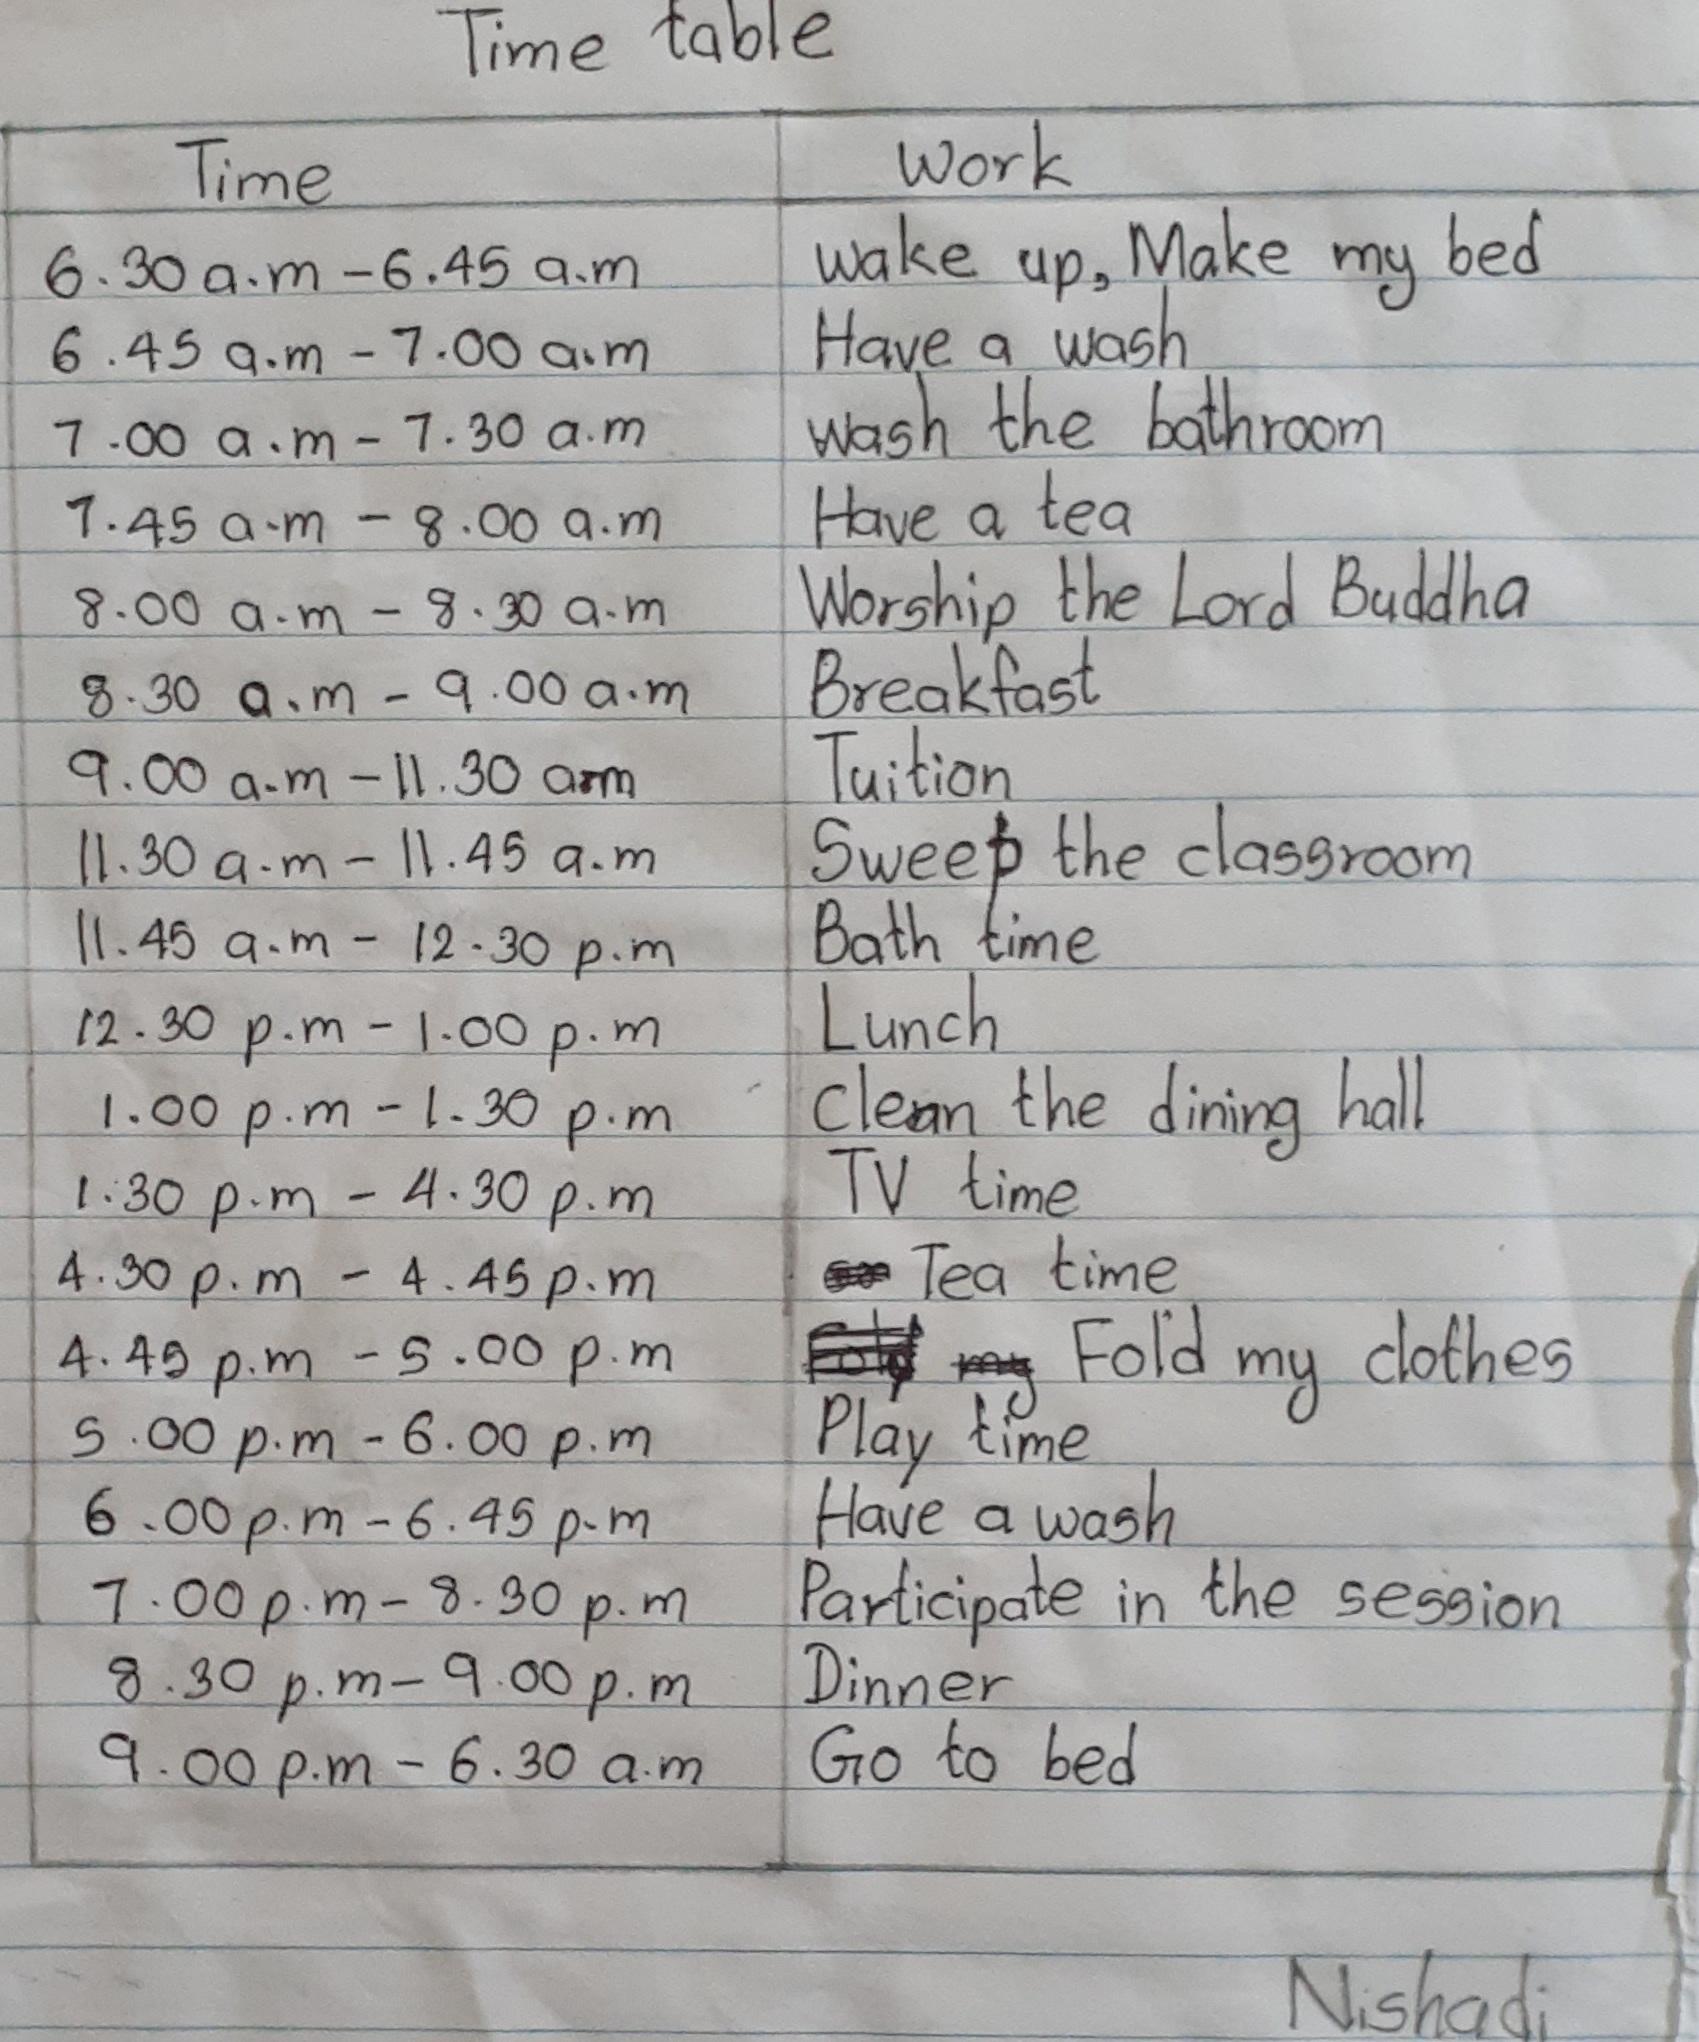 Time table
Time Work
6.30 a.m - 6.45 a.m wake up, Make my bed
6.45 a.m - 7.00 a.m Have a wash
7.00 a.m - 7.30 a.m wash the bathroom
7.45 a.m - 8.00 a.m Have a tea
8.00 a.m - 8.30 a.m Worship the Lord Buddha
8.30 a.m - 9.00 a.m Breakfast
9.00 a.m - 11.30 a.m Tuition
11.30 a.m - 11.45 a.m Sweep the classroom
11.45 a.m - 12.30 p.m Bath time
12.30 p.m - 1.00 p.m Lunch
1.00 p.m - 1.30 p.m clean the dining hall
1.30 p.m - 4.30 p.m TV time
4.30 p.m - 4.45 p.m Tea time
4.45 p.m - 5.00 p.m my Fold my clothes
5.00 p.m - 6.00 p.m Play time
6.00 p.m - 6.45 p.m Have a wash
7.00 p.m - 8.30 p.m Participate in the session
8.30 p.m - 9.00 p.m Dinner
9.00 p.m - 6.30 a.m Go to bed
Nishadi